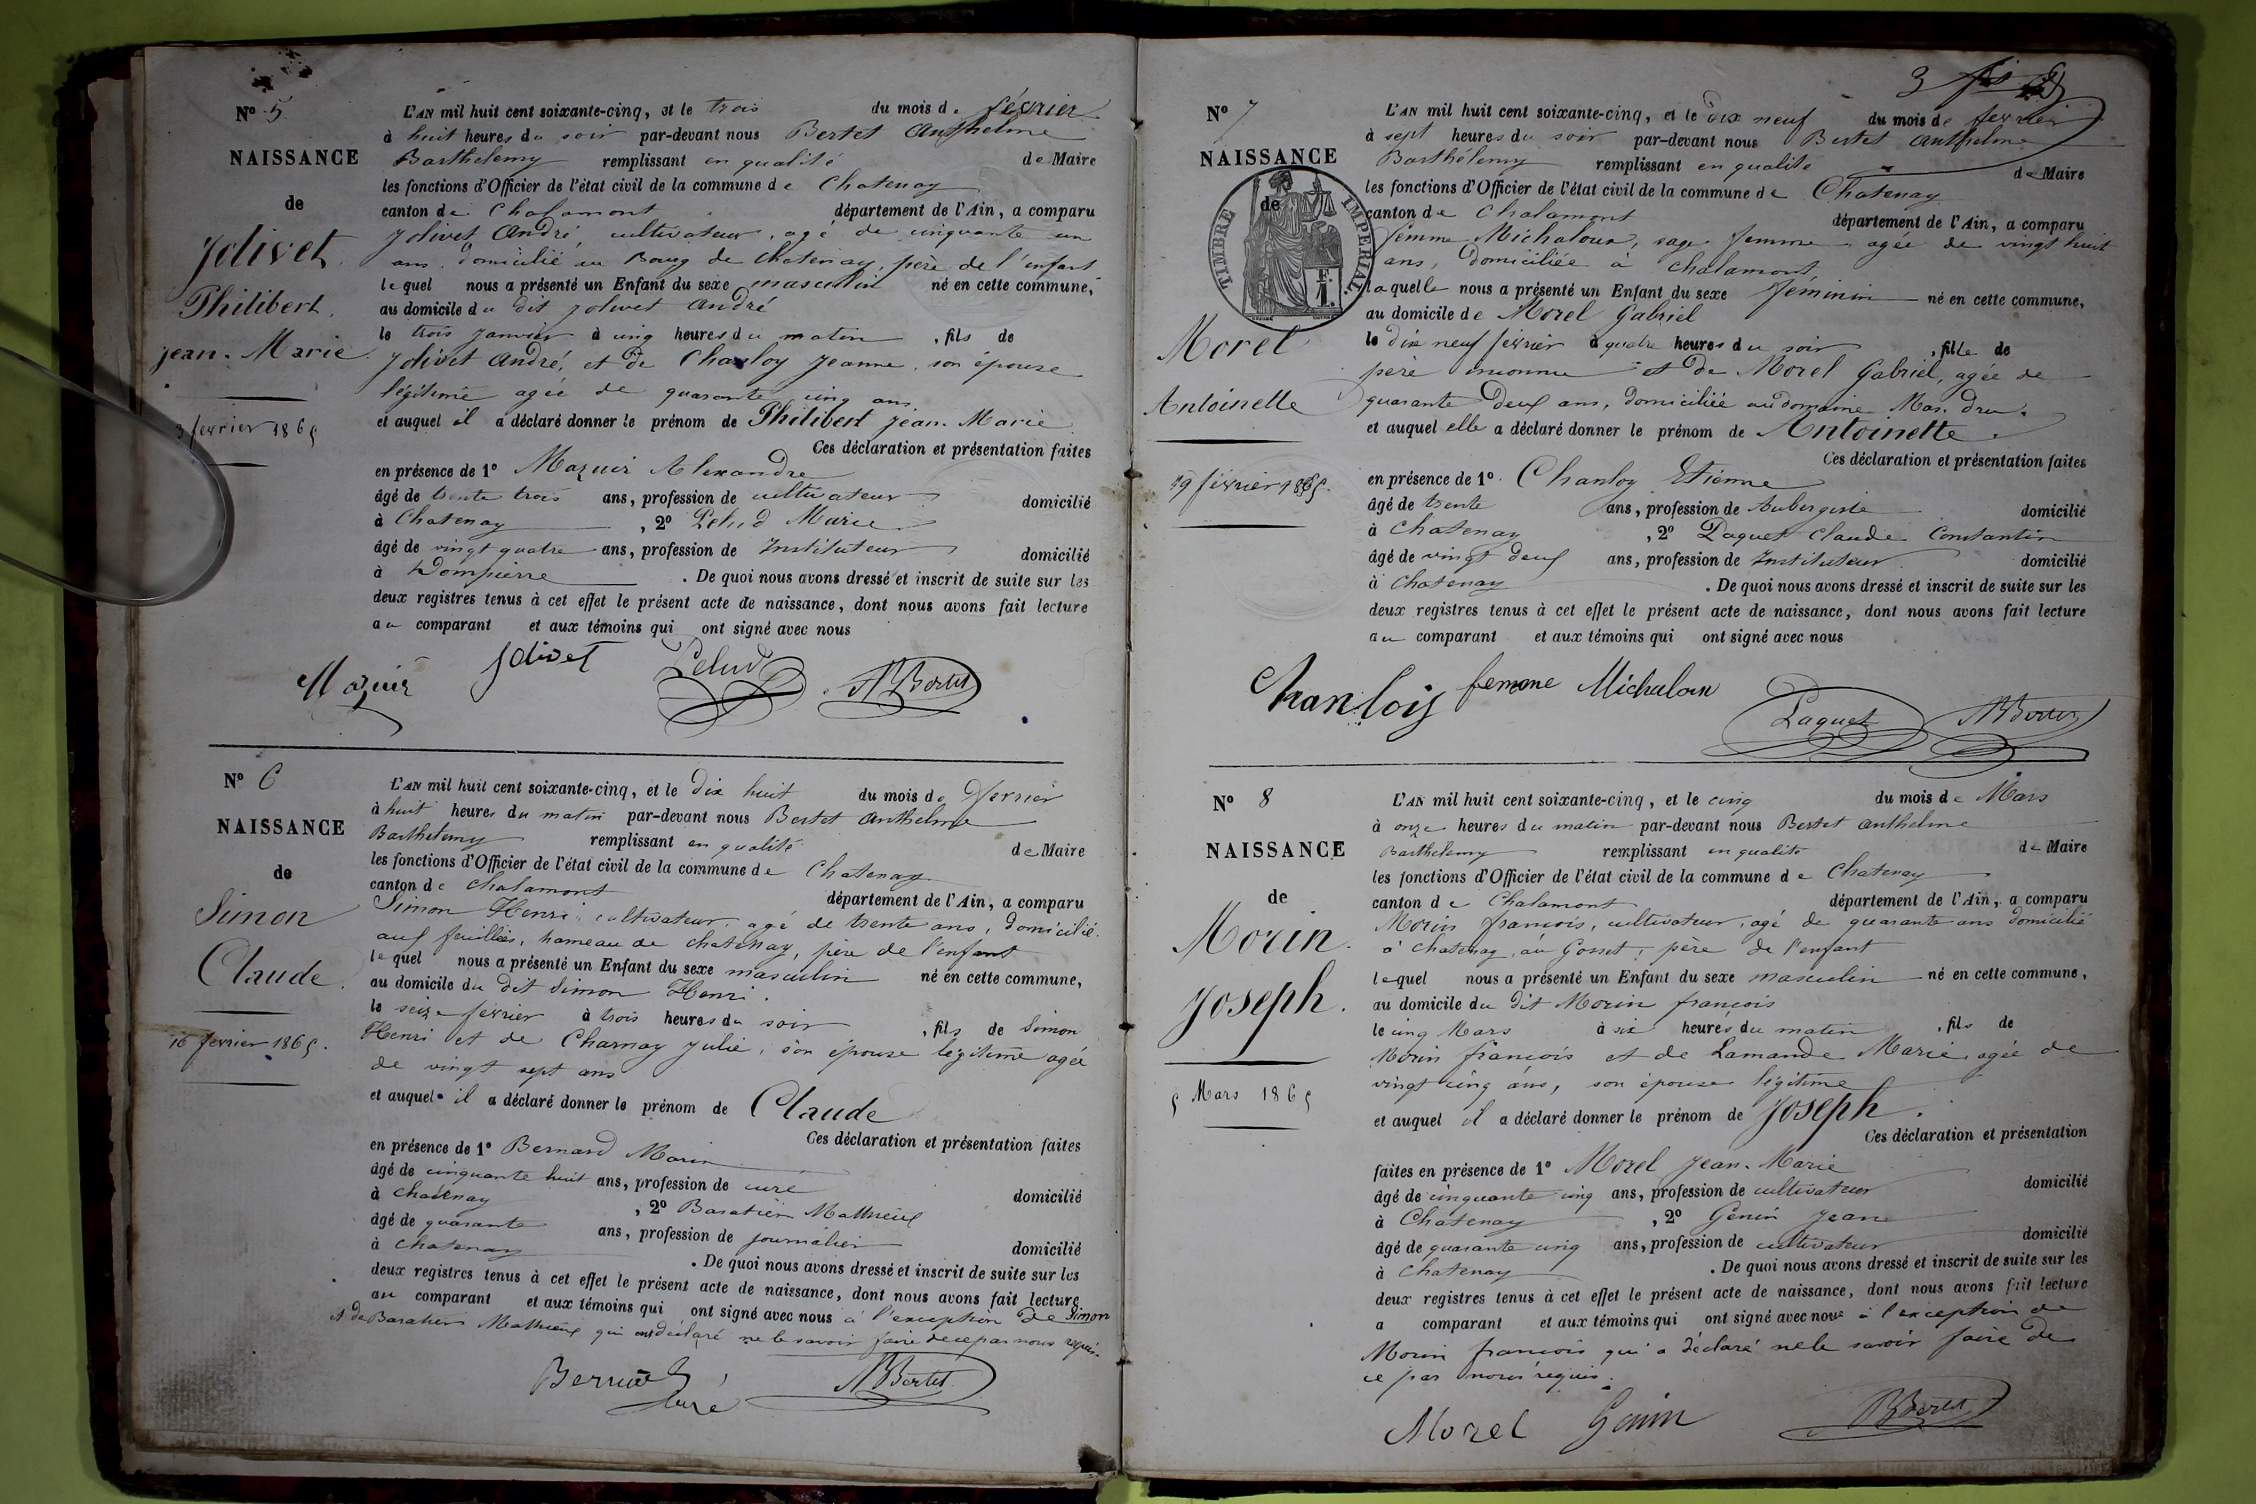 Nº 5
NAISSANCE
de
Jolivet
Philibert
Jean-Marie
3 février 1865
L'AN mil huit cent soixante-cinq, et le trois du mois de février
à huit heures du soir par-devant nous Bertet Anthelme
Barthelemy remplissant en qualité de Maire
les fonctions d'Officier de l'état civil de la commune de Chatenay
canton de Chalamont département de l'Ain, a comparu
Jolivet André, cultivateur, agé de cinquante un
ans, domicilié au Bourg de Chatenay, père de l'enfant
lequel nous a présenté un Enfant du sexe masculin né en cette commune,
au domicile du dit Jolivet André
le trois Janvier à cinq heures du matin, fils de
Jolivet André, et de Chanloy Jeanne, son épouse
légitime agée de quarante cinq ans
et auquel il a déclaré donner le prénom de Philibert Jean-Marie
Ces déclaration et présentation faites
en présence de 1º Mazuir Alexandre
âgé de trente trois ans, profession de cultivateur domicilié
à Chatenay, 2º Pelud Marie
âgé de vingt quatre ans, profession de Instituteur domicilié
à Dompierre. De quoi nous avons dressé et inscrit de suite sur les
deux registres tenus à cet effet le présent acte de naissance, dont nous avons fait lecture
au comparant et aux témoins qui ont signé avec nous
Mazuir Jolivet Pelud ABertet
Nº 6
NAISSANCE
de
Simon
Claude
16 février 1865.
L'AN mil huit cent soixante-cinq, et le dix huit du mois de février
à huit heures du matin par-devant nous Bertet Anthelme
Barthelemy remplissant en qualité de Maire
les fonctions d'Officier de l'état civil de la commune de Chatenay
canton de Chalamont département de l'Ain, a comparu
Simon Henri, cultivateur, agé de trente ans, domicilié
aux feuillées, hameau de Chatenay, père de l'enfant
lequel nous a présenté un Enfant du sexe masculin né en cette commune,
au domicile du dit Simon Henri.
le seize février à trois heures du soir, fils de Simon
Henri et de Charnay Julie, son épouse légitime agée
de vingt sept ans
et auquel il a déclaré donner le prénom de Claude
Ces déclaration et présentation faites
en présence de 1º Bernard Marin
âgé de cinquante huit ans, profession de curé domicilié
à Chatenay, 2º Baratier Mathieux
âgé de quarante ans, profession de journalier domicilié
à Chatenay. De quoi nous avons dressé et inscrit de suite sur les
deux registres tenus à cet effet le présent acte de naissance, dont nous avons fait lecture
au comparant et aux témoins qui ont signé avec nous à l'exception de Simon
et de Baratier Mathieux qui ont déclaré ne le savoir faire de ce par nous requis.
Bernard curé ABertet
3
Nº 7
NAISSANCE
de
TIMBRE IMPERIAL
Morel
Antoinette
19 février 1865.
L'AN mil huit cent soixante-cinq, et le dix neuf du mois de février
à sept heures du soir par-devant nous Bertet Anthelme
Barthélemy remplissant en qualité de Maire
les fonctions d'Officier de l'état civil de la commune de Chatenay
canton de Chalamont département de l'Ain, a comparu
femme Michaloux, sage-femme agée de vingt huit
ans, domiciliée à Chalamont,
laquelle nous a présenté un Enfant du sexe feminin né en cette commune,
au domicile de Morel Gabriel
le dix neuf février à quatre heures du soir, fille de
père inconnu et de Morel Gabriel, agée de
quarante deux ans, domiciliée au domaine Mas-dru.
et auquel elle a déclaré donner le prénom de Antoinette.
Ces déclaration et présentation faites
en présence de 1º Chanloy Etienne
âgé de trente ans, profession de Aubergiste domicilié
à Chatenay, 2º Paquet Claude Constantin
âgé de vingt deux ans, profession de Instituteur domicilié
à Chatenay. De quoi nous avons dressé et inscrit de suite sur les
deux registres tenus à cet effet le présent acte de naissance, dont nous avons fait lecture
au comparant et aux témoins qui ont signé avec nous
Chanloiy femme Michaloux Paquet ABertet
Nº 8
NAISSANCE
de
Morin
Joseph
5 Mars 1865
L'AN mil huit cent soixante-cinq, et le cinq du mois de Mars
à onze heures du matin par-devant nous Bertet Anthelme
Barthelemy remplissant en qualité de Maire
les fonctions d'Officier de l'état civil de la commune de Chatenay
canton de Chalamont département de l'Ain, a comparu
Morin françois, cultivateur, agé de quarante ans domicilié
à Chatenay, au Gosset, père de l'enfant
lequel nous a présenté un Enfant du sexe masculin né en cette commune,
au domicile du dit Morin françois
le cinq Mars à six heures du matin, fils de
Morin françois et de Lamande Marie agée de
vingt cinq ans, son épouse légitime
et auquel il a déclaré donner le prénom de Joseph.
Ces déclaration et présentation
faites en présence de 1º Morel Jean-Marie
âgé de cinquante cinq ans, profession de cultivateur domicilié
à Chatenay, 2º Genin Jean
âgé de quarante cinq ans, profession de cultivateur domicilié
à Chatenay. De quoi nous avons dressé et inscrit de suite sur les
deux registres tenus à cet effet le présent acte de naissance, dont nous avons fait lecture
a comparant et aux témoins qui ont signé avec nous à l'exception de
Morin françois qui a déclaré ne le savoir faire de
ce par nous requis.
Morel Genin ABertet